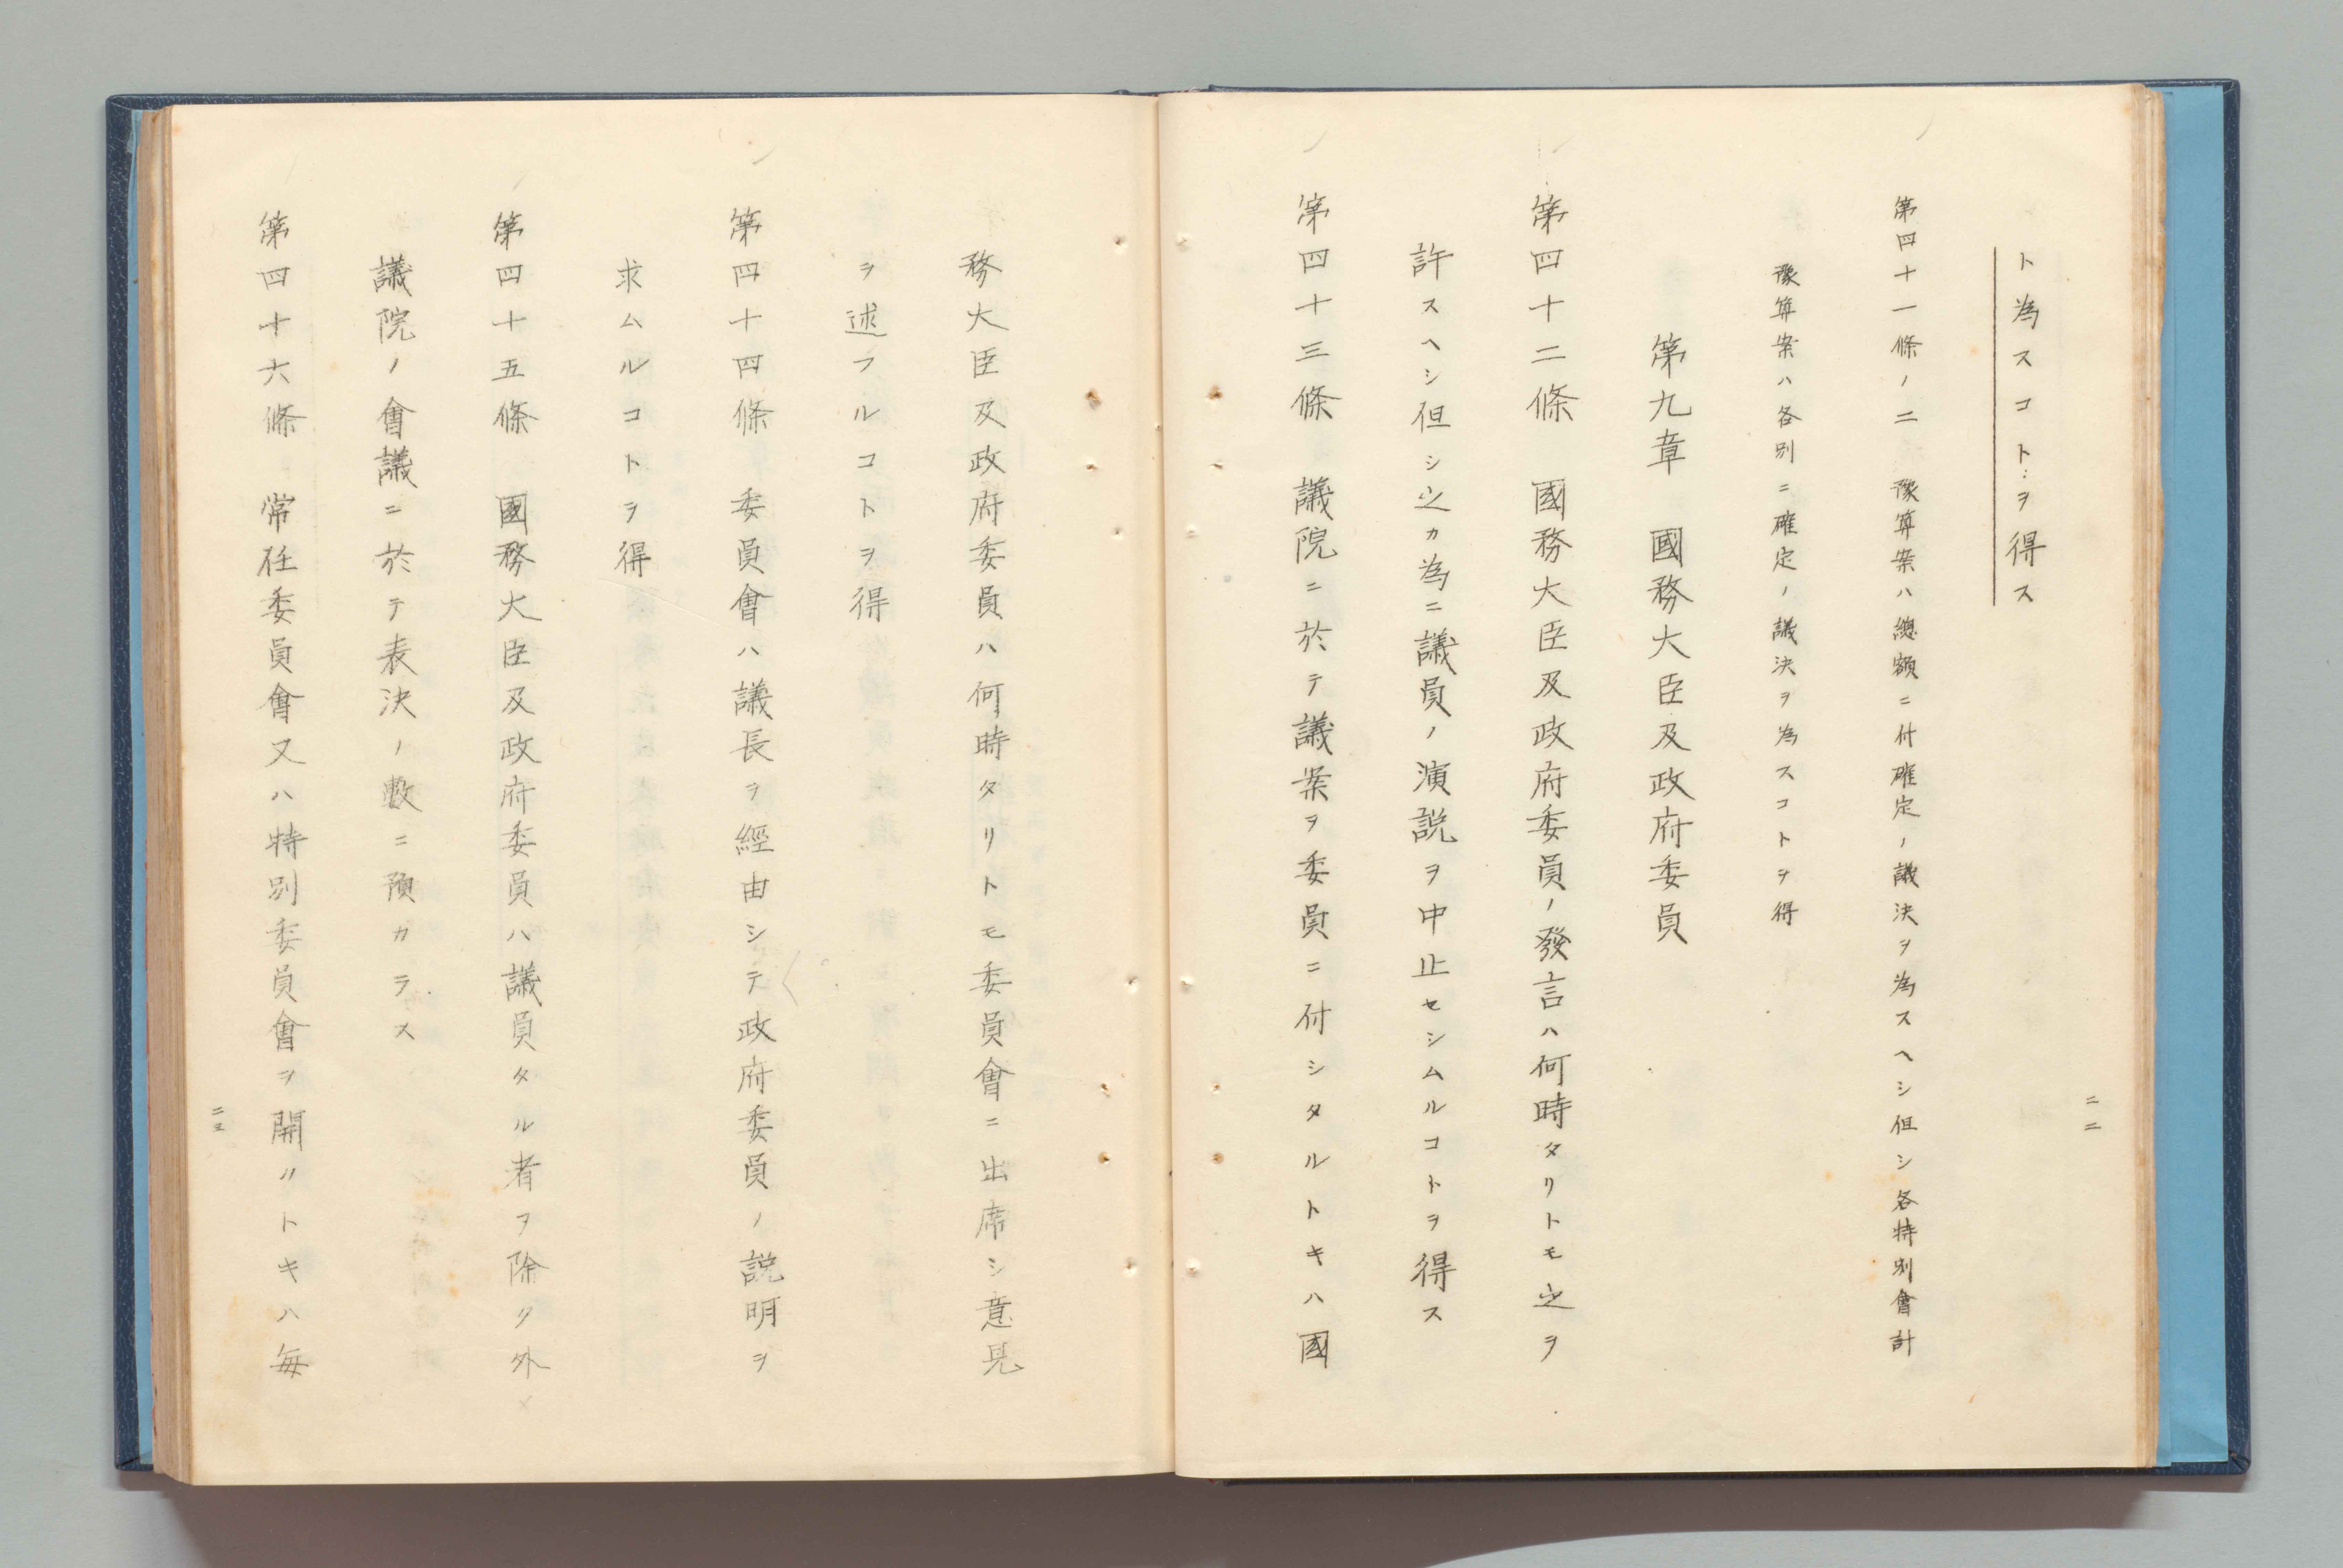 ト為スコトヲ得ス
第四十一條ノ二　豫算案ハ總額ニ付確定ノ議決ヲ為スヘシ但シ各特別會計
豫算案ハ各別ニ確定ノ議決ヲ為スコトヲ得
第九章　國務大臣及政府委員
第四十二條　國務大臣及政府委員ノ發言ハ何時タリトモ之ヲ
許スヘシ但シ之カ為ニ議員ノ演説ヲ中止セシムルコトヲ得ス
第四十三條　議院ニ於テ議案ヲ委員ニ付シタルトキハ國
二二
務大臣及政府委員ハ何時タリトモ委員會ニ出席シ意見
ヲ述フルコトヲ得
第四十四條　委員會ハ議長ヲ經由シテ政府委員ノ説明ヲ
求ムルコトヲ得
第四十五條　國務大臣及政府委員ハ議員タル者ヲ除ク外
議院ノ會議ニ於テ表決ノ數ニ預カラス
第四十六條　常任委員會又ハ特別委員會ヲ開クトキハ毎
二三